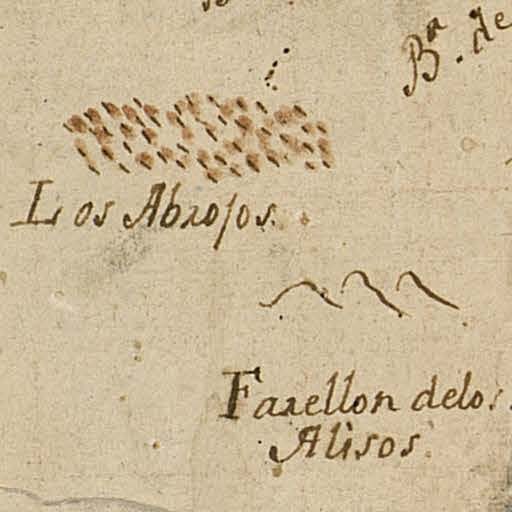 Bª. de
Los Abrojos.
Farellon delos
Alisos